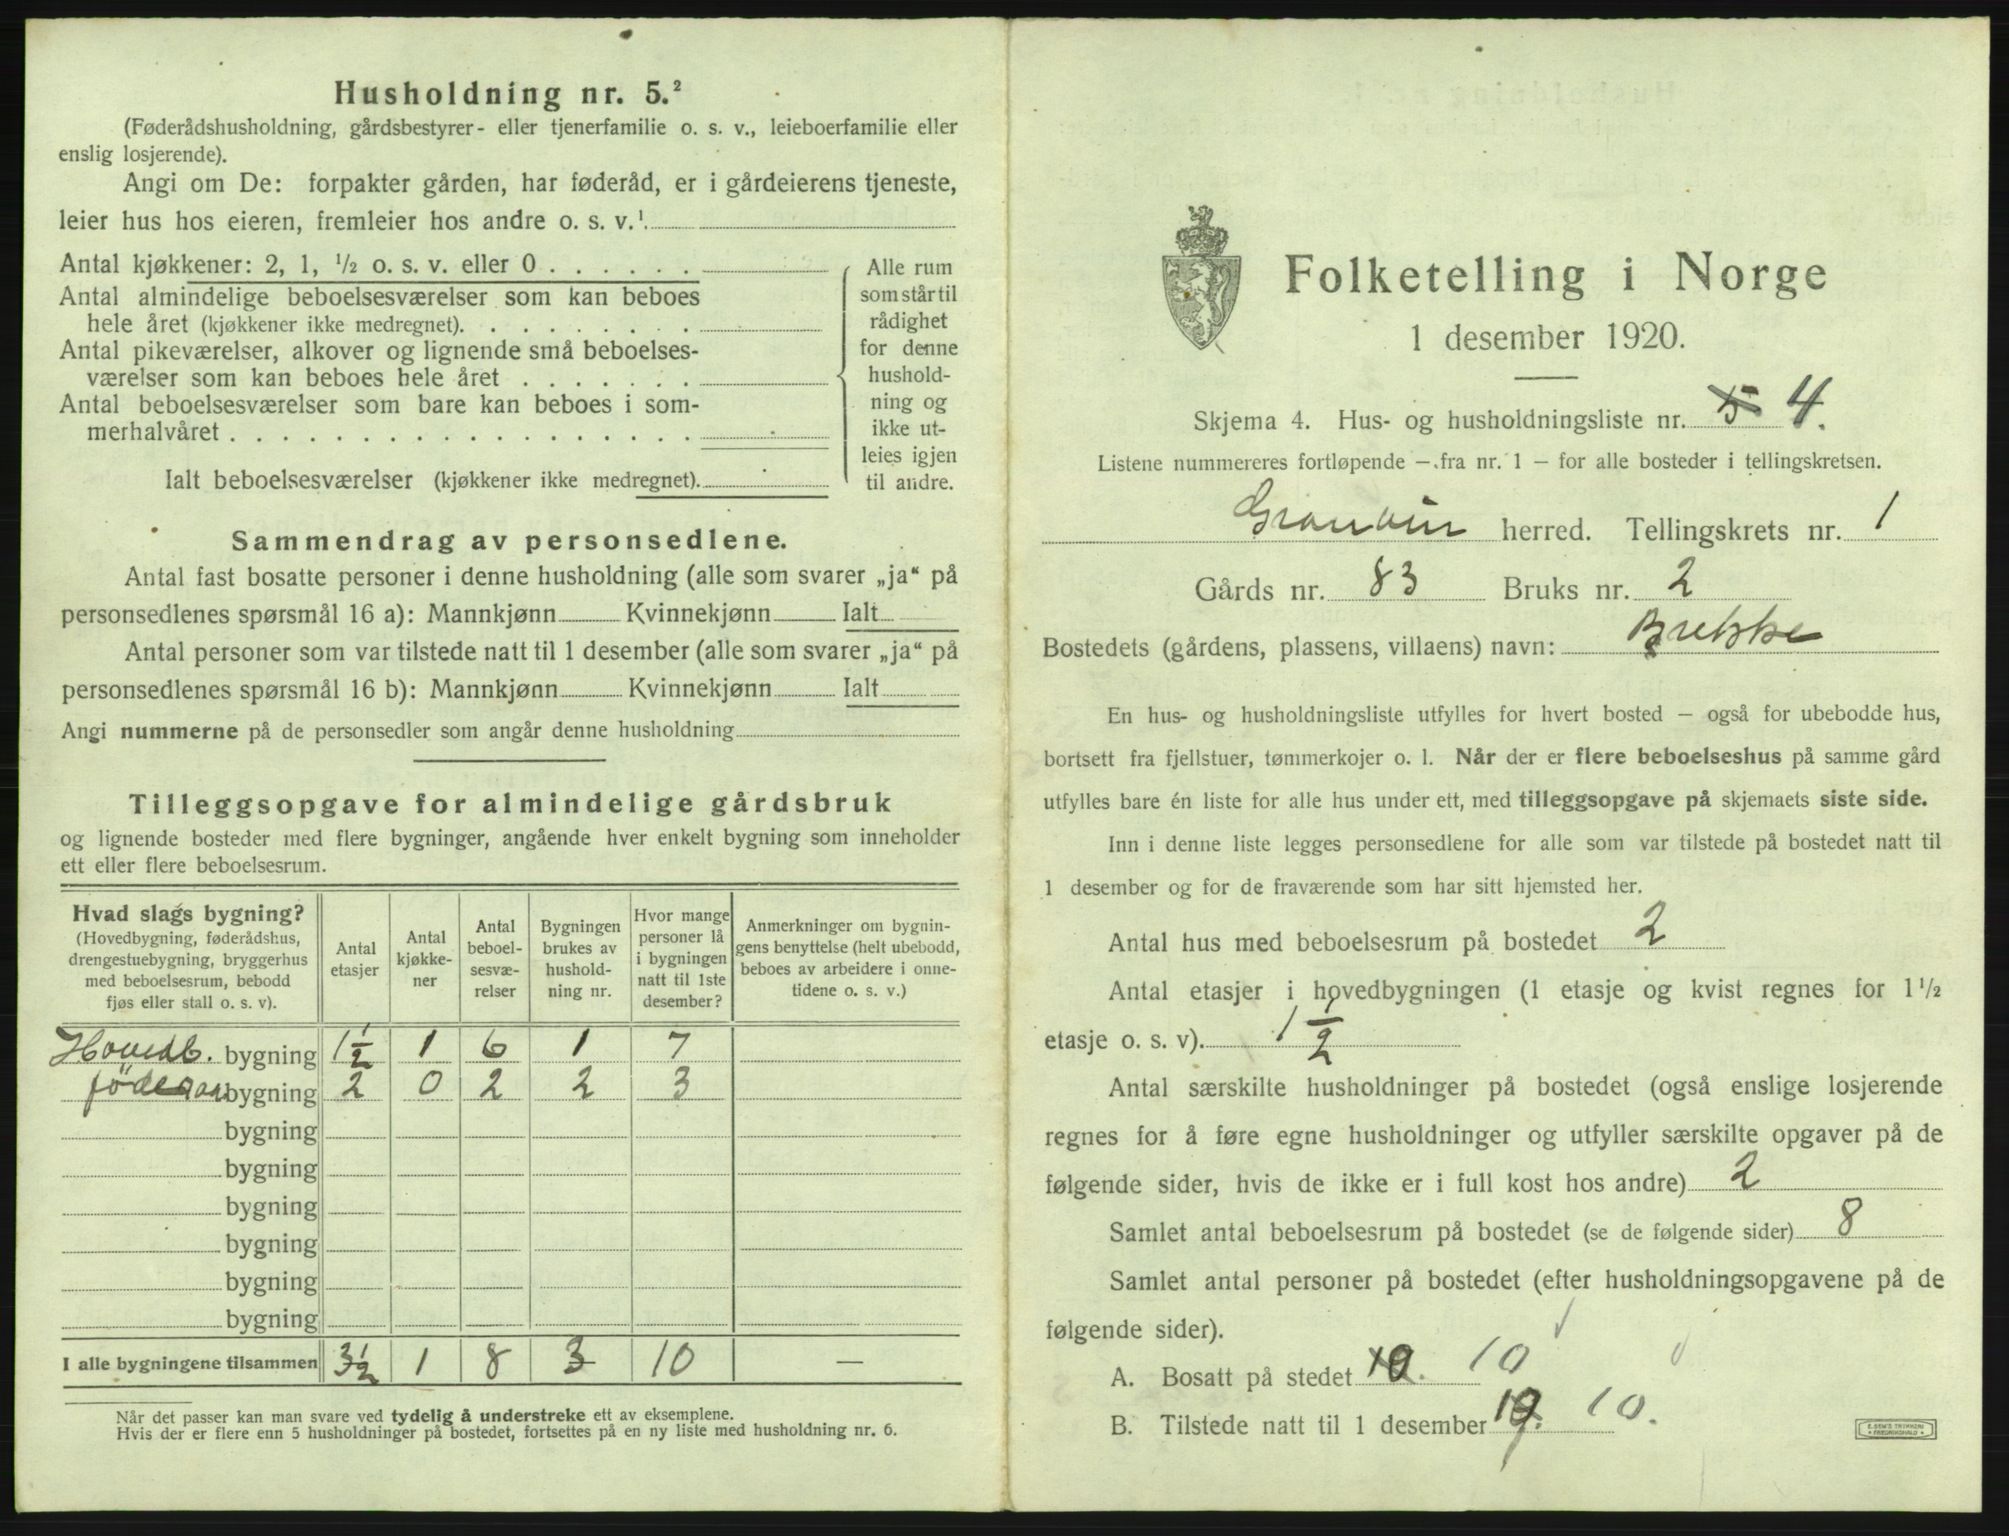 Husholdning nr. 5.²
(Føderådshusholdning, gårdsbestyrer- eller tjenerfamilie o. s. v., leieboerfamilie eller
enslig losjerende).
Angi om De: forpakter gården, har føderåd, er i gårdeierens tjeneste,
leier hus hos eieren, fremleier hos andre o. s. v.¹
Antal kjøkkener: 2, 1, ½ o. s. v. eller 0
Antal almindelige beboelsesværelser som kan beboes
hele året (kjøkkener ikke medregnet).
Antal pikeværelser, alkover og lignende små beboelses-
værelser som kan beboes hele året
Antal beboelsesværelser som bare kan beboes i som-
merhalvåret
Ialt beboelsesværelser (kjøkkener ikke medregnet).
Alle rum
som står til
rådighet
for denne
hushold-
ning og
ikke ut-
leies igjen
til andre.
Sammendrag av personsedlene.
Antal fast bosatte personer i denne husholdning (alle som svarer „ja“ på
personsedlenes spørsmål 16 a): Mannkjønn Kvinnekjønn Ialt
Antal personer som var tilstede natt til 1 desember (alle som svarer „ja“ på
personsedlenes spørsmål 16 b): Mannkjønn Kvinnekjønn Ialt
Angi nummerne på de personsedler som angår denne husholdning
Tilleggsopgave for almindelige gårdsbruk
og lignende bosteder med flere bygninger, angående hver enkelt bygning som inneholder
ett eller flere beboelsesrum.
Hvad slags bygning?
(Hovedbygning, føderådshus,
drengestuebygning, bryggerhus
med beboelsesrum, bebodd
fjøs eller stall o. s. v).
Antal
etasjer
Antal
kjøkke-
ner
Antal
beboel-
sesvæ-
relser
Bygningen
brukes av
hushold-
ning nr.
Hvor mange
personer lå
i bygningen
natt til 1ste
desember?
Anmerkninger om bygnin-
gens benyttelse (helt ubebodd,
beboes av arbeidere i onne-
tidene o. s. v.)
Hovedb. bygning 1½ 1 6 1 7
bygning 2 0 2 2 3
bygning
bygning
bygning
bygning
bygning
bygning
I alle bygningene tilsammen 3½ 1 8 3 10 —
Når det passer kan man svare ved tydelig å understreke ett av eksemplene.
Hvis der er flere enn 5 husholdninger på bostedet, fortsettes på en ny liste med husholdning nr. 6.
Folketelling i Norge
1 desember 1920.
Skjema 4. Hus- og husholdningsliste nr. 5 4.
Listene nummereres fortløpende — fra nr. 1 — for alle bosteder i tellingskretsen.
Granvin herred. Tellingskrets nr. 1
Gårds nr. 83 Bruks nr. 2
Bostedets (gårdens, plassens, villaens) navn: Brekke
En hus- og husholdningsliste utfylles for hvert bosted — også for ubebodde hus,
bortsett fra fjellstuer, tømmerkojer o. l. Når der er flere beboelseshus på samme gård
utfylles bare én liste for alle hus under ett, med tilleggsopgave på skjemaets siste side.
Inn i denne liste legges personsedlene for alle som var tilstede på bostedet natt til
1 desember og for de fraværende som har sitt hjemsted her.
Antal hus med beboelsesrum på bostedet 2
Antal etasjer i hovedbygningen (1 etasje og kvist regnes for 1½
etasje o. s. v). 1½
Antal særskilte husholdninger på bostedet (også enslige losjerende
regnes for å føre egne husholdninger og utfyller særskilte opgaver på de
følgende sider, hvis de ikke er i full kost hos andre) 2
Samlet antal beboelsesrum på bostedet (se de følgende sider) 8
Samlet antal personer på bostedet (efter husholdningsopgavene på de
følgende sider).
A. Bosatt på stedet 10. 10
B. Tilstede natt til 1 desember 10. 10.